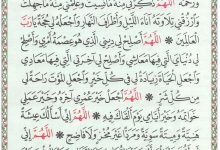 وَرَحْمَةً ۞ اَللّٰهُمَّ ذَكِّرْنِي مِنْهُ مَانَسِيتُ وَعَلِّمْنِي مِنْهُ مَاجَهِلْتُ
وَارْزُقْنِي تِلَاوَتَهُ آنَاءَ اللَّيْلِ وَأَطْرَافَ النَّهَارِ وَاجْعَلْهُ لِي حُجَّةً يَارَبَّ
الْعَالَمِينَ ۞ اَللّٰهُمَّ أَصْلِحْ لِي دِينِي الَّذِي هُوَعِصْمَةُ أَمْرِي وَأَصْلِحْ
لِي دُنْيَايَ الَّتِي فِيهَا مَعَاشِي وَأَصْلِحْ لِي آخِرَتِي الَّتِي فِيهَا مَعَادِي
وَاجْعَلِ الْحَيَاةَ زِيَادَةً لِي فِي كُلِّ خَيْرٍ وَاجْعَلِ الْمَوْتَ رَاحَةً لِي
مِنْ كُلِّ شَرٍّ ۞ اَللّٰهُمَّ اجْعَلْ خَيْرَ عُمْرِي آخِرَهُ وَخَيْرَ عَمَلِي
خَوَاتِمَهُ وَخَيْرَ أَيَّامِي يَوْمَ أَلْقَاكَ فِيهِ ۞ اَللّٰهُمَّ إِنِّي أَسْأَلُكَ عِيشَةً
هَنِيَّةً وَمِيتَةً سَوِيَّةً وَمَرَدًّا غَيْرَ مُخْزٍ وَلَافَاضِحٍ ۞ اَللّٰهُمَّ إِنِّي